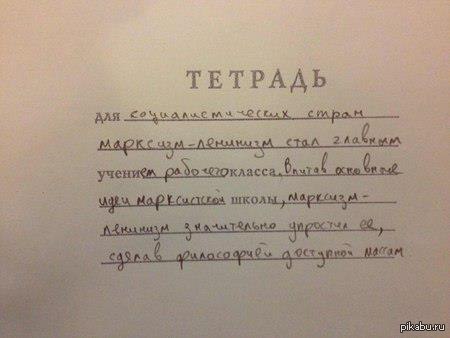 ТЕТРАДЬ
для социалистических стран
марксизм-ленинизм стал главным
учением рабочего класса. Впитав основные
идеи марксистской школы, марксизм-
ленинизм значительно упростил ее,
сделав философией доступной массам
pikabu.ru